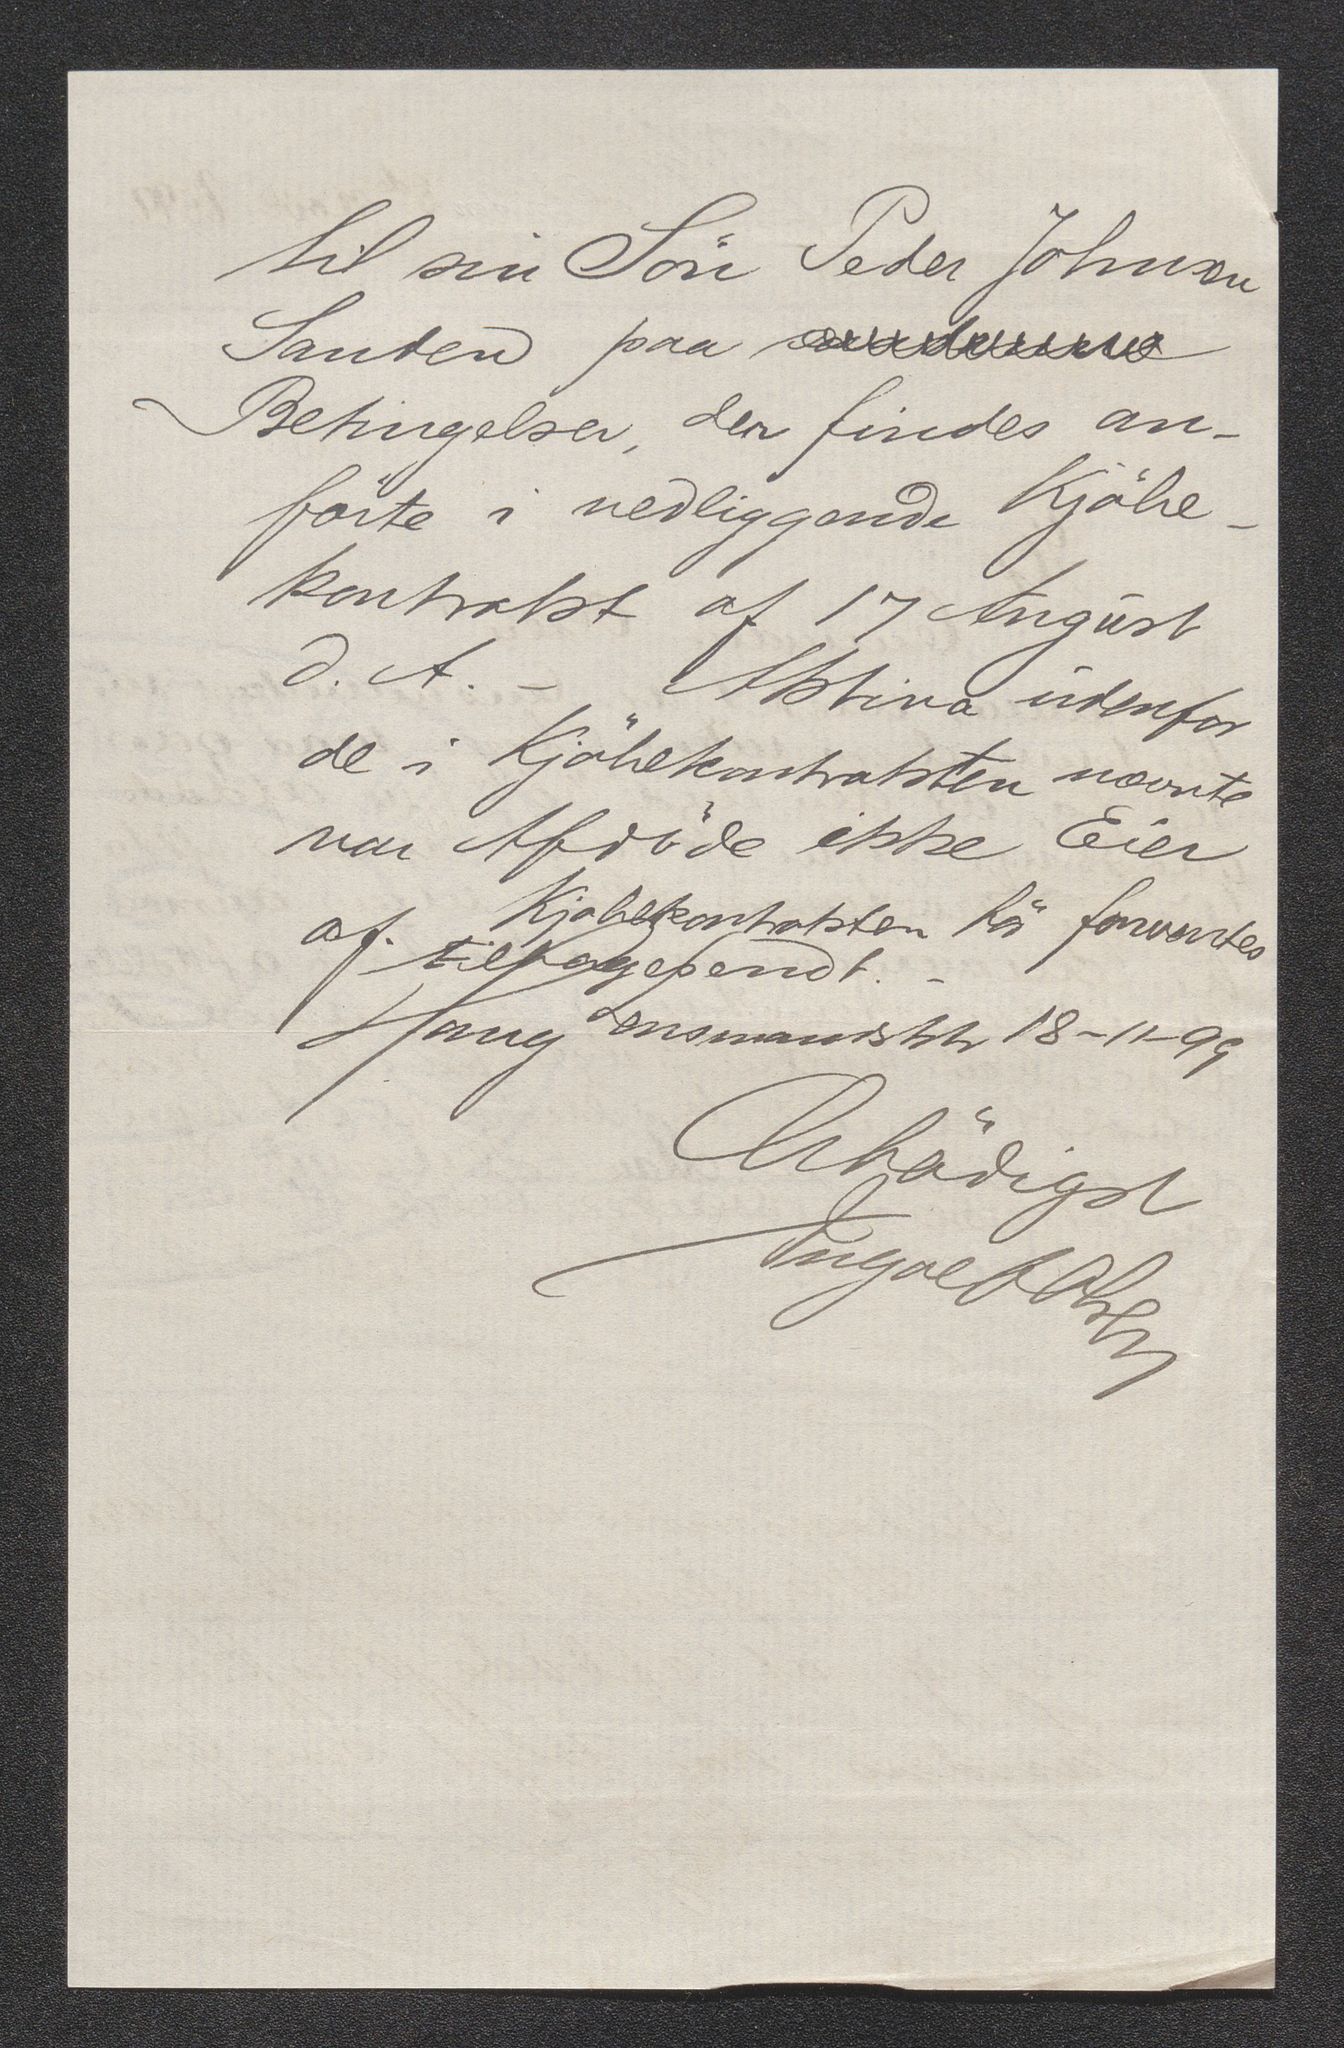 til sin Sön Peder Johnsen
Sanden paa
Betingelser, der findes an-
förte i vedliggende Kjöbe-
kontrakt af 17 August
d. A. - Aktiva udenfor
de i Kjöbekontrakten nævnte
var Afdöde ikke Eier
af. Kjöbekontrakten bör forventes
tilbagesendt. -
Haug Lensmandsktr 18-11-99
Ærbödigst
Ingval Olsen